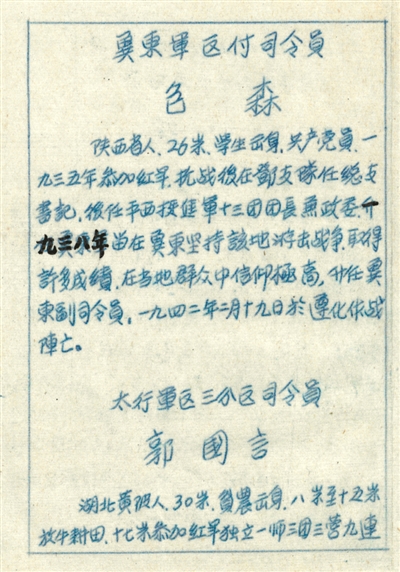 冀東軍区付司令員
包 森
陕西省人、26米、学生出身、共产党員、一
九三五年参加紅軍、抗战後在鄧支隊任総支
書記，後任平西挺進軍十三团团長兼政委，十
九三八年留在冀東坚持該地游击战争，取得
許多成績，在当地群众中信仰極高，升任冀
東副司令員，一九四二年二月十九日於遵化作战
陣亡。
太行軍区三分区司令員
郭國言
湖北黄陂人、30米、貧農出身、八米至十五米
放牛耕田、十七米参加紅軍独立一师三团三营九連